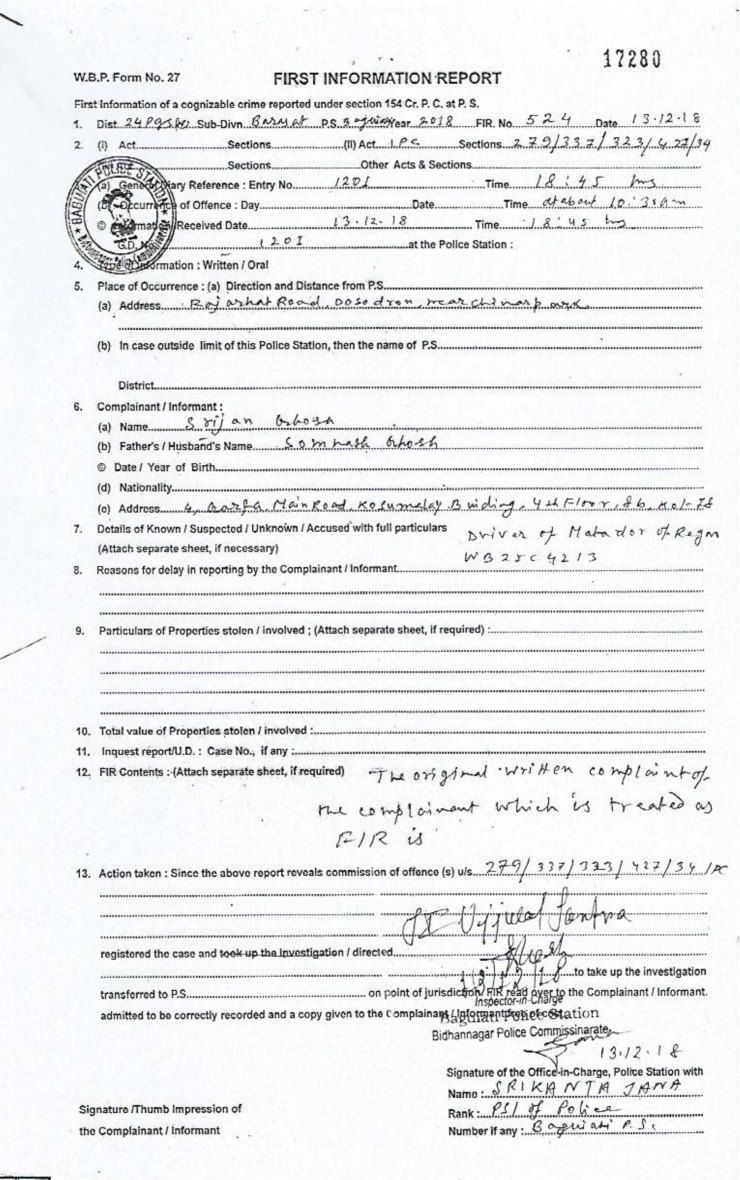 17280
W.B.P. Form No. 27 FIRST INFORMATION REPORT
First Information of a cognizable crime reported under section 154 Cr. P. C. at P. S.
1. Dist Sub-Divn. Barasat P.S. Year 2018 FIR. No. 524 Date 13.12.18
2. (i) Act Sections (II) Act I.P.C Sections 279/337/323/427/34
Sections Other Acts & Sections
(a) General Diary Reference : Entry No. 1201 Time 18:45 hrs
(b) Occurrence of Offence : Day Date Time at about 10:30am
© Information Received Date 13.12.18 Time 18:45 hrs
G.D. No. 1201 at the Police Station :
BAGUIATI POLICE STATION
4. Type of Information : Written / Oral
5. Place of Occurrence : (a) Direction and Distance from P.S.
(a) Address Rajarhat Road, Dosodron, near chinarpark
(b) In case outside limit of this Police Station, then the name of P.S.
District
6. Complainant / Informant :
(a) Name Srijan Ghosh
(b) Father's / Husband's Name Somnath Ghosh
© Date / Year of Birth
(d) Nationality
(e) Address 4, Garfa Main Road, Building, 4th Floor, Kol-78
7. Details of Known / Suspected / Unknown / Accused with full particulars Driver of Matador of Regn
(Attach separate sheet, if necessary) WB25C4213
8. Reasons for delay in reporting by the Complainant / Informant
9. Particulars of Properties stolen / involved ; (Attach separate sheet, if required) :
10. Total value of Properties stolen / involved :
11. Inquest report/U.D. : Case No., if any :
12. FIR Contents : (Attach separate sheet, if required) The original written complaint of
the complainant which is treated as
FIR is
13. Action taken : Since the above report reveals commission of offence (s) u/s. 279/337/323/427/34 IPC
SI Ujjwal Santra
registered the case and took up the investigation / directed
13/12/18 to take up the investigation
transferred to P.S. on point of jurisdiction. FIR read over to the Complainant / Informant.
Inspector-in-Charge
admitted to be correctly recorded and a copy given to the Complainant / Informant free of cost.
Baguiati Police Station
Bidhannagar Police Commissinarate
13.12.18
Signature of the Office-in-Charge, Police Station with
Name : SRIKANTA JANA
Signature /Thumb Impression of Rank : PSI of Police
the Complainant / Informant Number if any : Baguiati P.S.